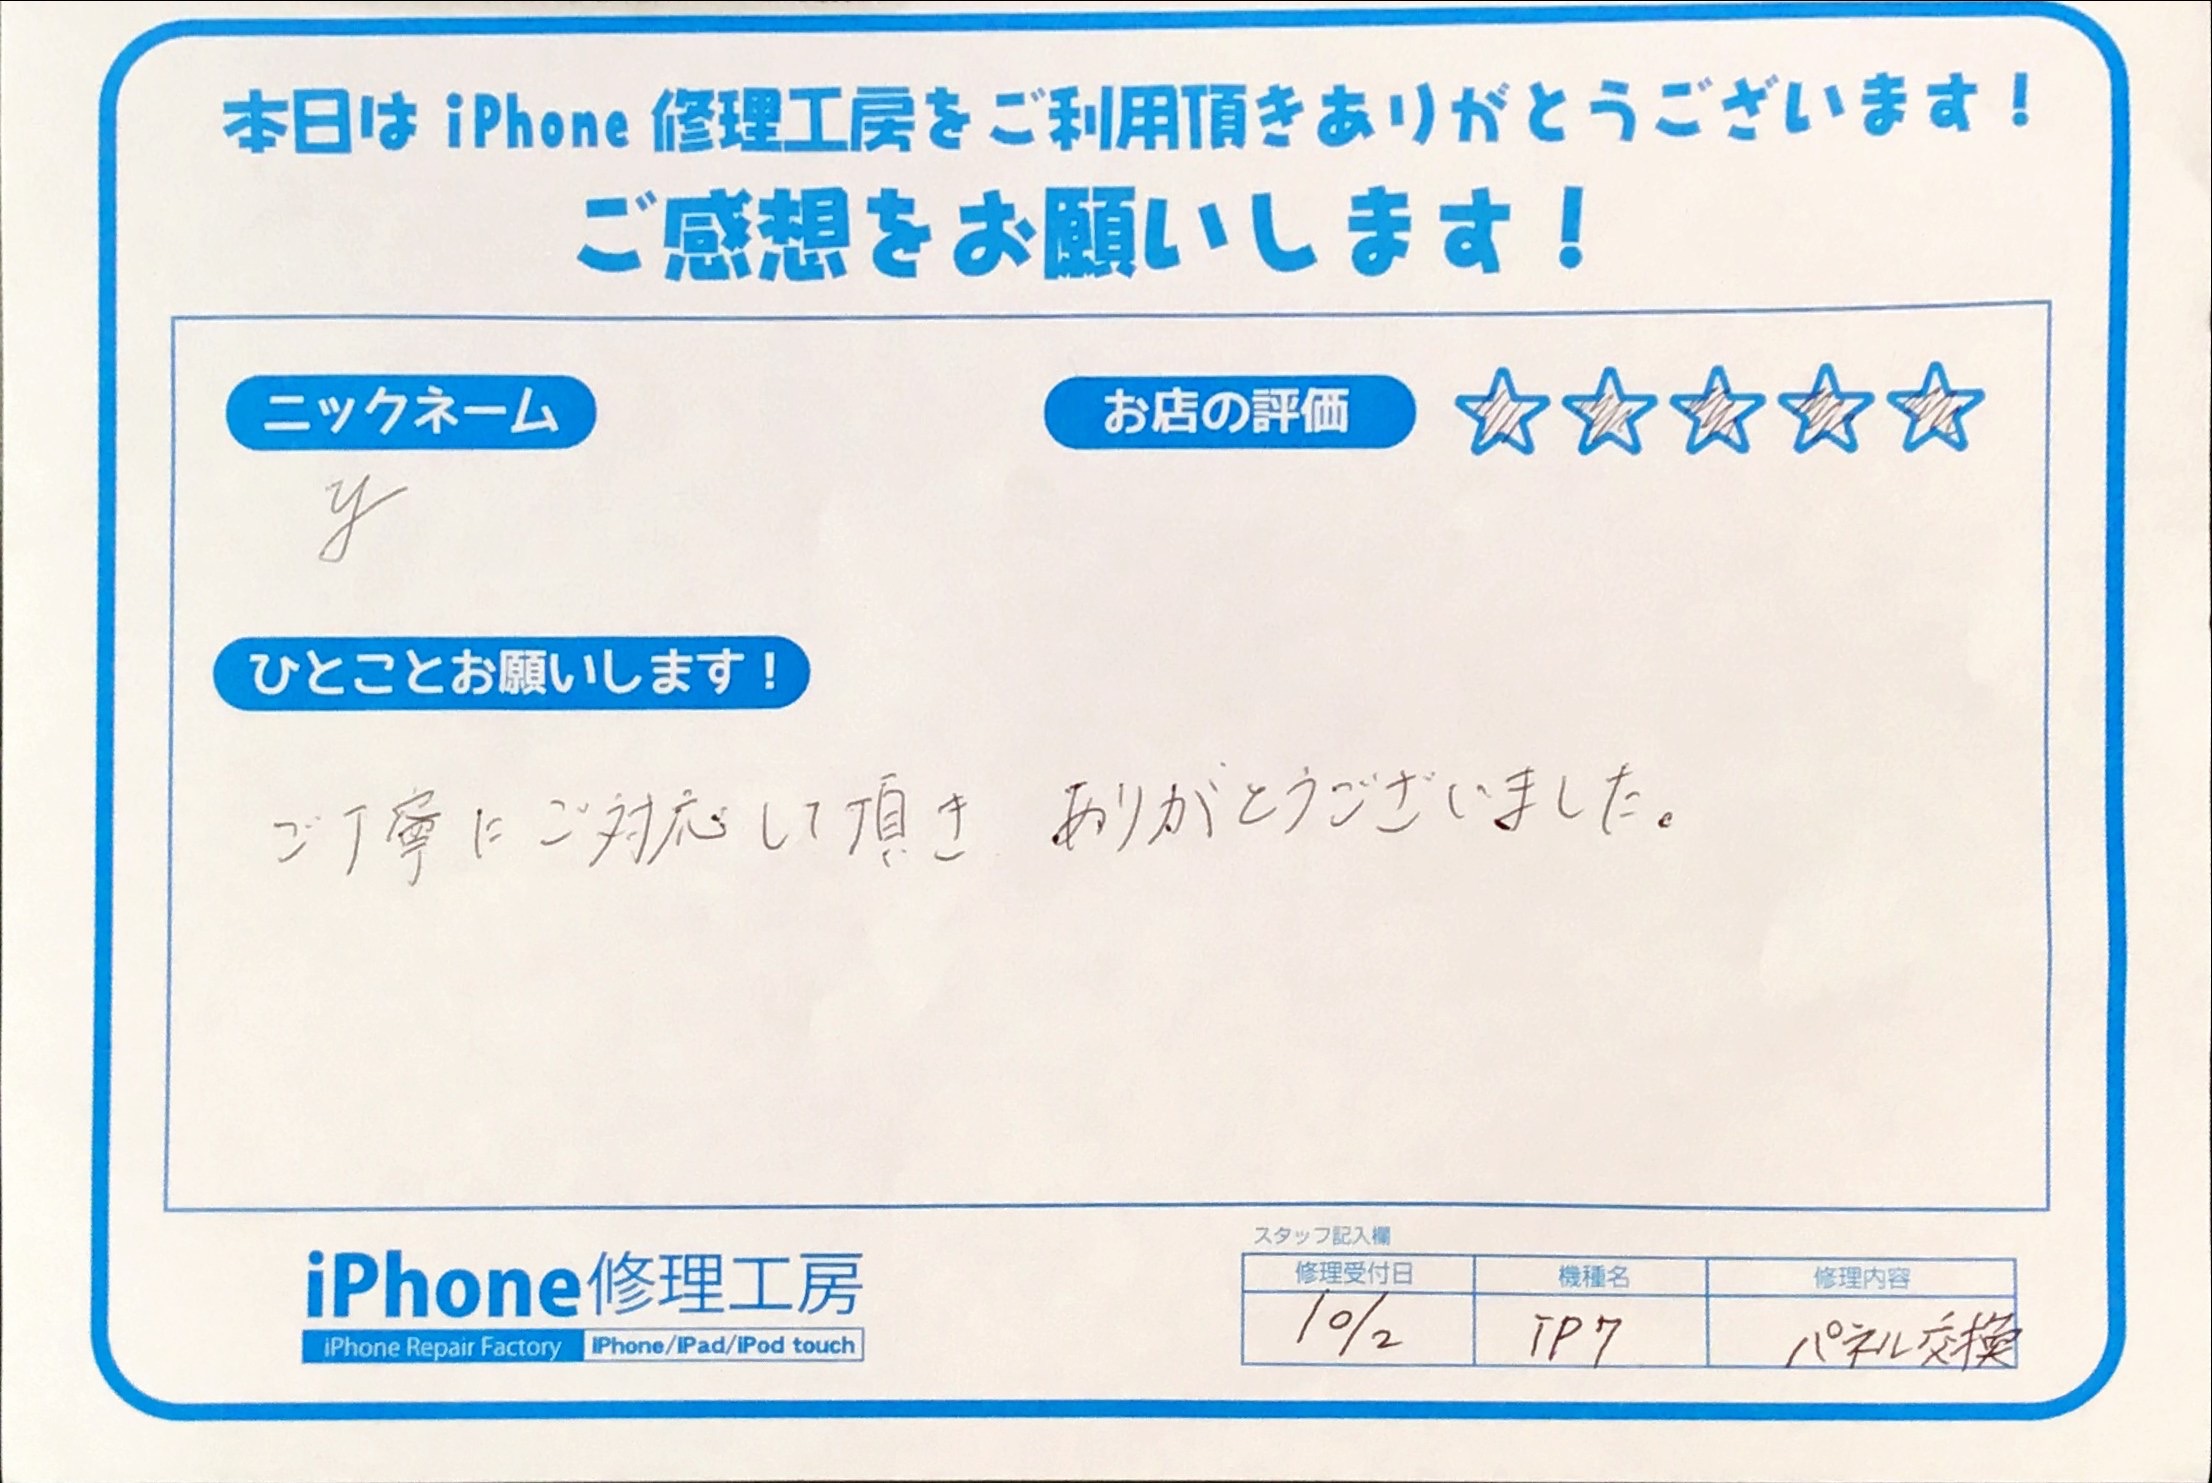 本日は iPhone 修理工房をご利用頂きありがとうございます！
ご感想をお願いします！
ニックネーム
お店の評価
y
ひとことお願いします！
ご丁寧にご対応して頂き ありがとうございました。
iPhone修理工房
iPhone Repair Factory
iPhone/iPad/iPod touch
スタッフ記入欄
修理受付日 機種名 修理内容
10/2 iP7 パネル交換